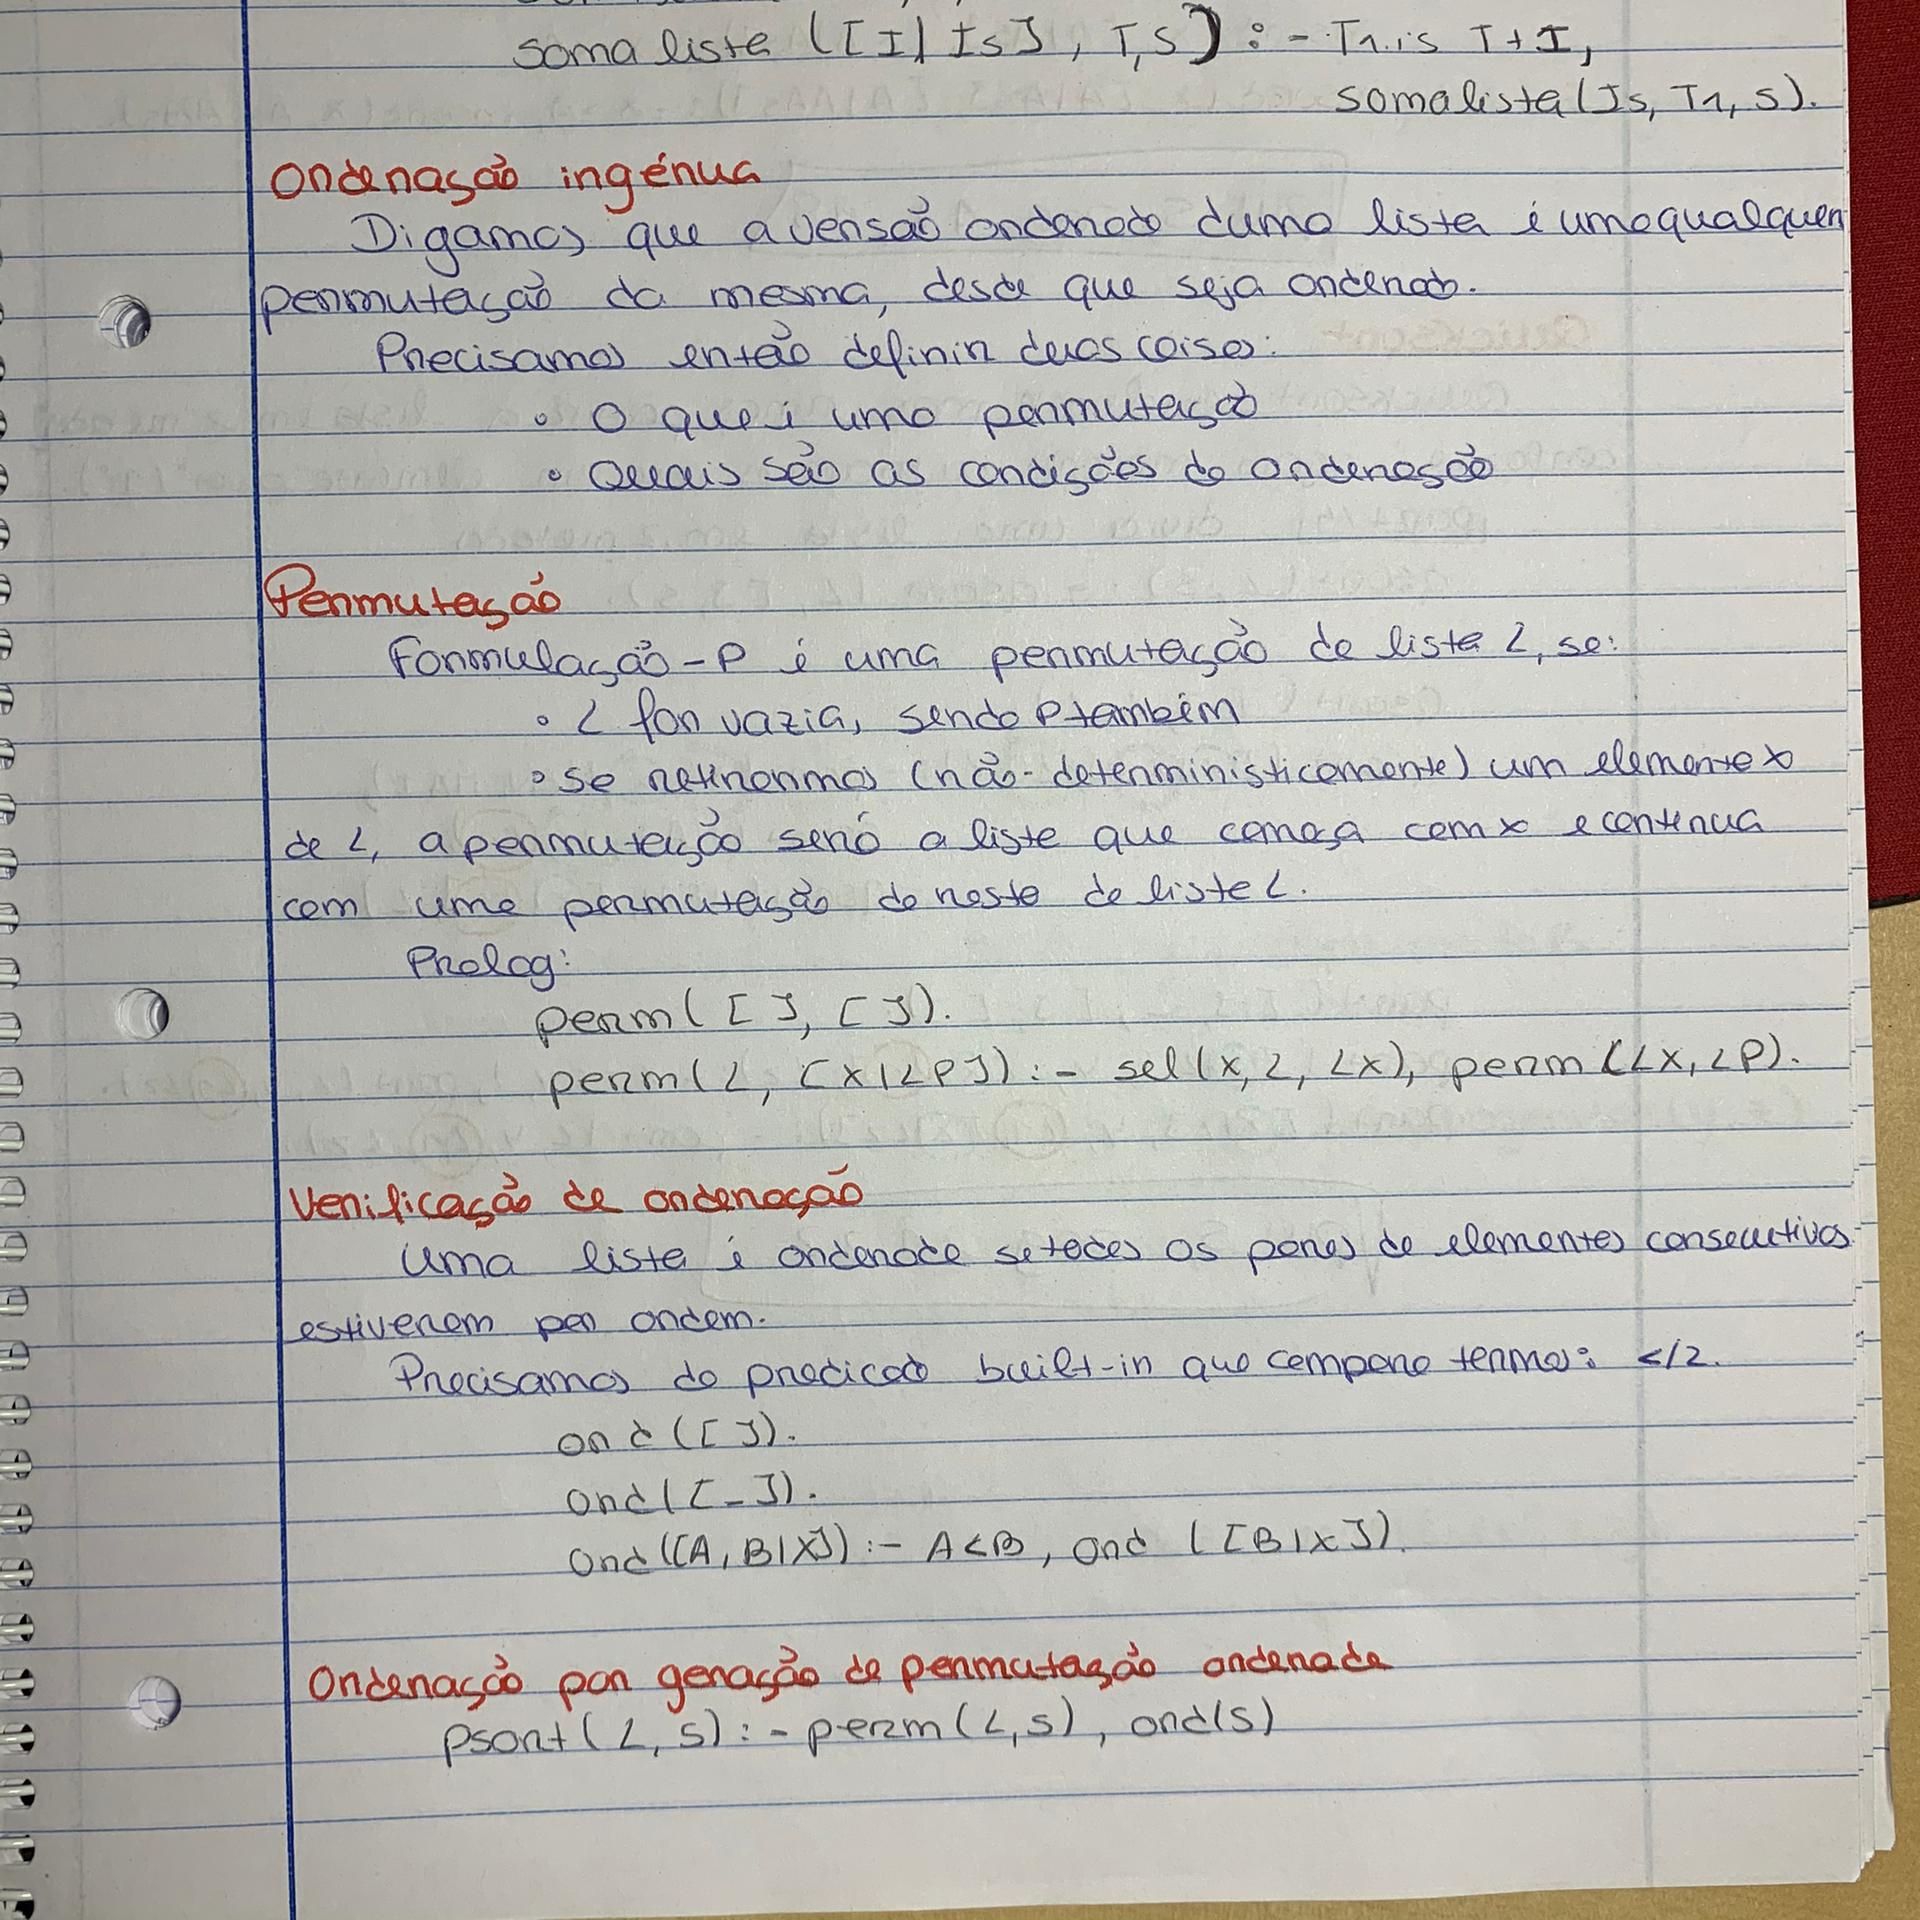 somalista ([I|Is], T,S) :- T1 is T+I,
somalista(Is, T1, S).
Ordenação ingénua
Digamos que a versão ordenada duma lista é uma qualquer
permutação da mesma, desde que seja ordenada.
Precisamos então definir duas coisas:
• O que é uma permutação
• Quais são as condições de ordenação
Permutação
Formulação - P é uma permutação de lista L, se:
• L for vazia, sendo P também
• Se retirarmos (não-deterministicamente) um elemento x
de L, a permutação será a lista que começa com x e continua
com uma permutação do resto de lista L.
Prolog:
perm([ ], [ ]).
perm(L, [X|LP]) :- sel(X, L, LX), perm(LX, LP).
Verificação de ordenação
Uma lista é ordenada se todos os pares de elementos consecutivos
estiverem por ordem.
Precisamos do predicado built-in que compara termos: </2.
ord([ ]).
ord([_]).
ord([A, B|X]) :- A<B, ord([B|X]).
Ordenação por geração de permutação ordenada
psort(L, S) :- perm(L,S), ord(S)